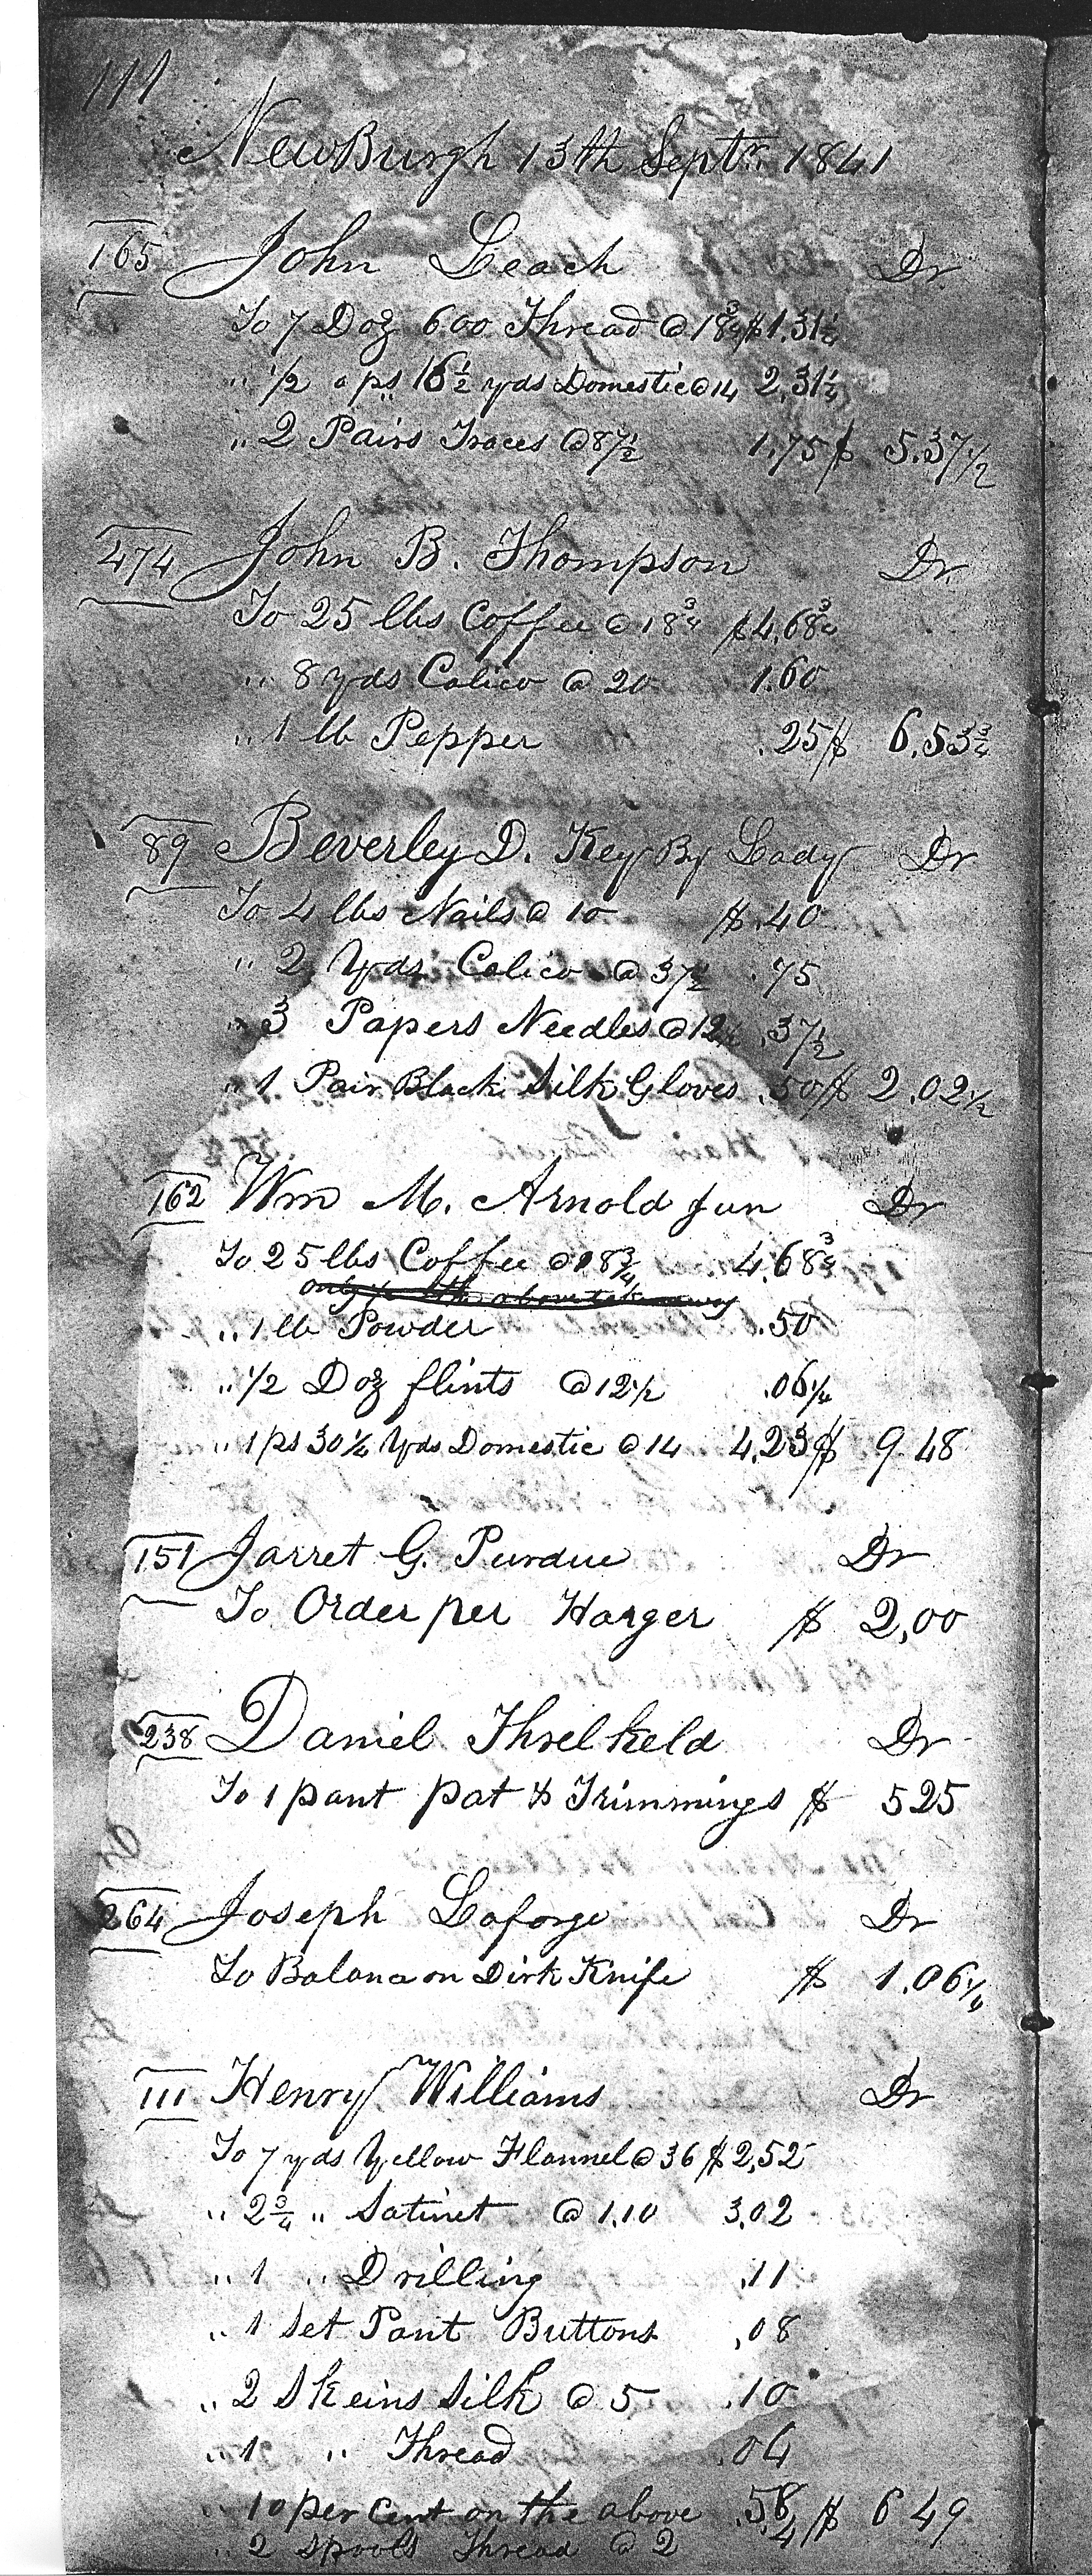 111
NewBurgh 13th Septr. 1841
165 John Leach Dr
To 7 Doz 600 Thread @ 18¾ $1.31¼
" ½ a ps 16½ yds Domestic @ 14 2,31¼
" 2 Pairs Traces @ 87½ 1.75 $ 5.37½
474 John B. Thompson Dr.
To 25 lbs Coffee @ 18¾ $4,68¾
" 8 yds Calico @ 20 1.60
" 1 lb Pepper .25 $ 6.53¾
89 Beverley D. Key By Lady Dr
To 4 lbs Nails @ 10 $.40
" 2 Yds Calico @ 37½ .75
" 3 Papers Needles @ 12½ .37½
" 1 Pair Black Silk Gloves .50 $ 2.02½
162 Wm M. Arnold Jun Dr
To 25 lbs Coffee @ 18¾ 4.68¾
only ½ the above taken away
" 1 lb Powder .50
" ½ Doz flints @ 12½ .06¼
" 1 ps 30¼ Yds Domestic @ 14 4.23 $ 9 48
151 Jarret G. Purdue Dr
To Order per Harger $ 2,00
238 Daniel Threlkeld Dr
To 1 pant pat & Trimmings $ 525
264 Joseph Laforge Dr
To Balance on Dirk Knife $ 1.06¼
111 Henry Williams Dr
To 7 yds Yellow Flannel @ 36 $2,52
" 2¾ " Satinet @ 1,10 3,02
" 1 " Drilling .11
" 1 Set Pant Buttons ,08
" 2 Skeins Silk @ 5 .10
" 1 " Thread .04
" 10 per Cent on the above .58 $ 6 49
" 2 Spools Thread @ 2 4